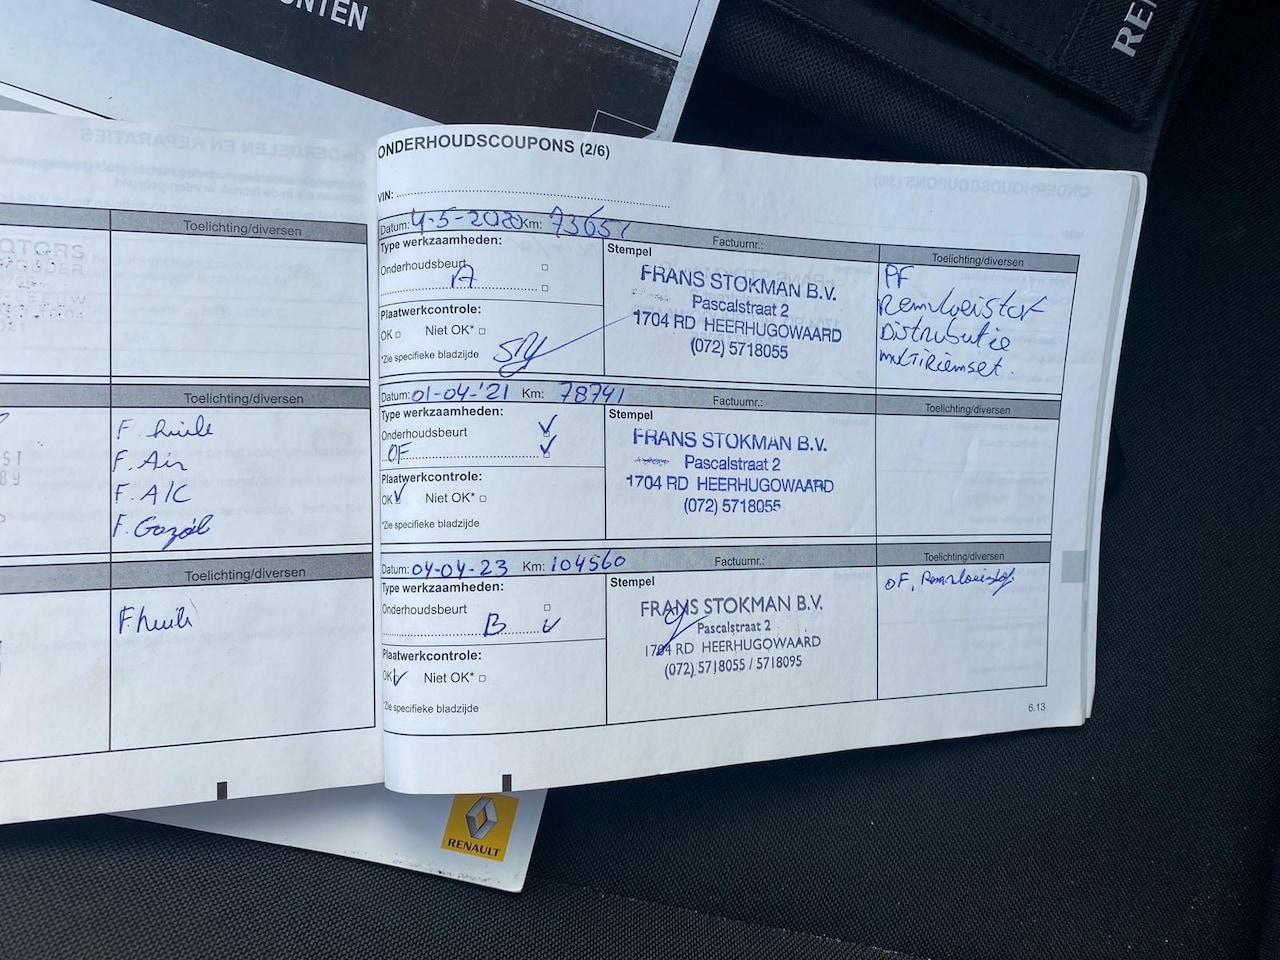 ONTEN
REN
ONDERDELEN EN REPARATIES
Toelichting/diversen
Toelichting/diversen
F. huile
F. Air
F. A/C
F. Gazoil
Toelichting/diversen
F. huile
ONDERHOUDSCOUPONS (2/6)
VIN:
Datum: 4-5-2020 Km: 73651
Factuurnr.:
Toelichting/diversen
Type werkzaamheden:
Onderhoudsbeurt
A
Plaatwerkcontrole:
OK Niet OK*
*Zie specifieke bladzijde
Stempel
FRANS STOKMAN B.V.
Pascalstraat 2
1704 RD HEERHUGOWAARD
(072) 5718055
PF
Remvloeistof
Distributie
multiriemset.
Datum: 01-04-'21 Km: 78741
Factuurnr.:
Toelichting/diversen
Type werkzaamheden:
Onderhoudsbeurt
OF
Plaatwerkcontrole:
OK Niet OK*
*Zie specifieke bladzijde
Stempel
FRANS STOKMAN B.V.
Pascalstraat 2
1704 RD HEERHUGOWAARD
(072) 5718055
Datum: 04-04-23 Km: 104560
Factuurnr.:
Toelichting/diversen
Type werkzaamheden:
Onderhoudsbeurt
B
Plaatwerkcontrole:
OK Niet OK*
*Zie specifieke bladzijde
Stempel
FRANS STOKMAN B.V.
Pascalstraat 2
1704 RD HEERHUGOWAARD
(072) 5718055 / 5718095
OF, Remvloeistof.
6.13
RENAULT